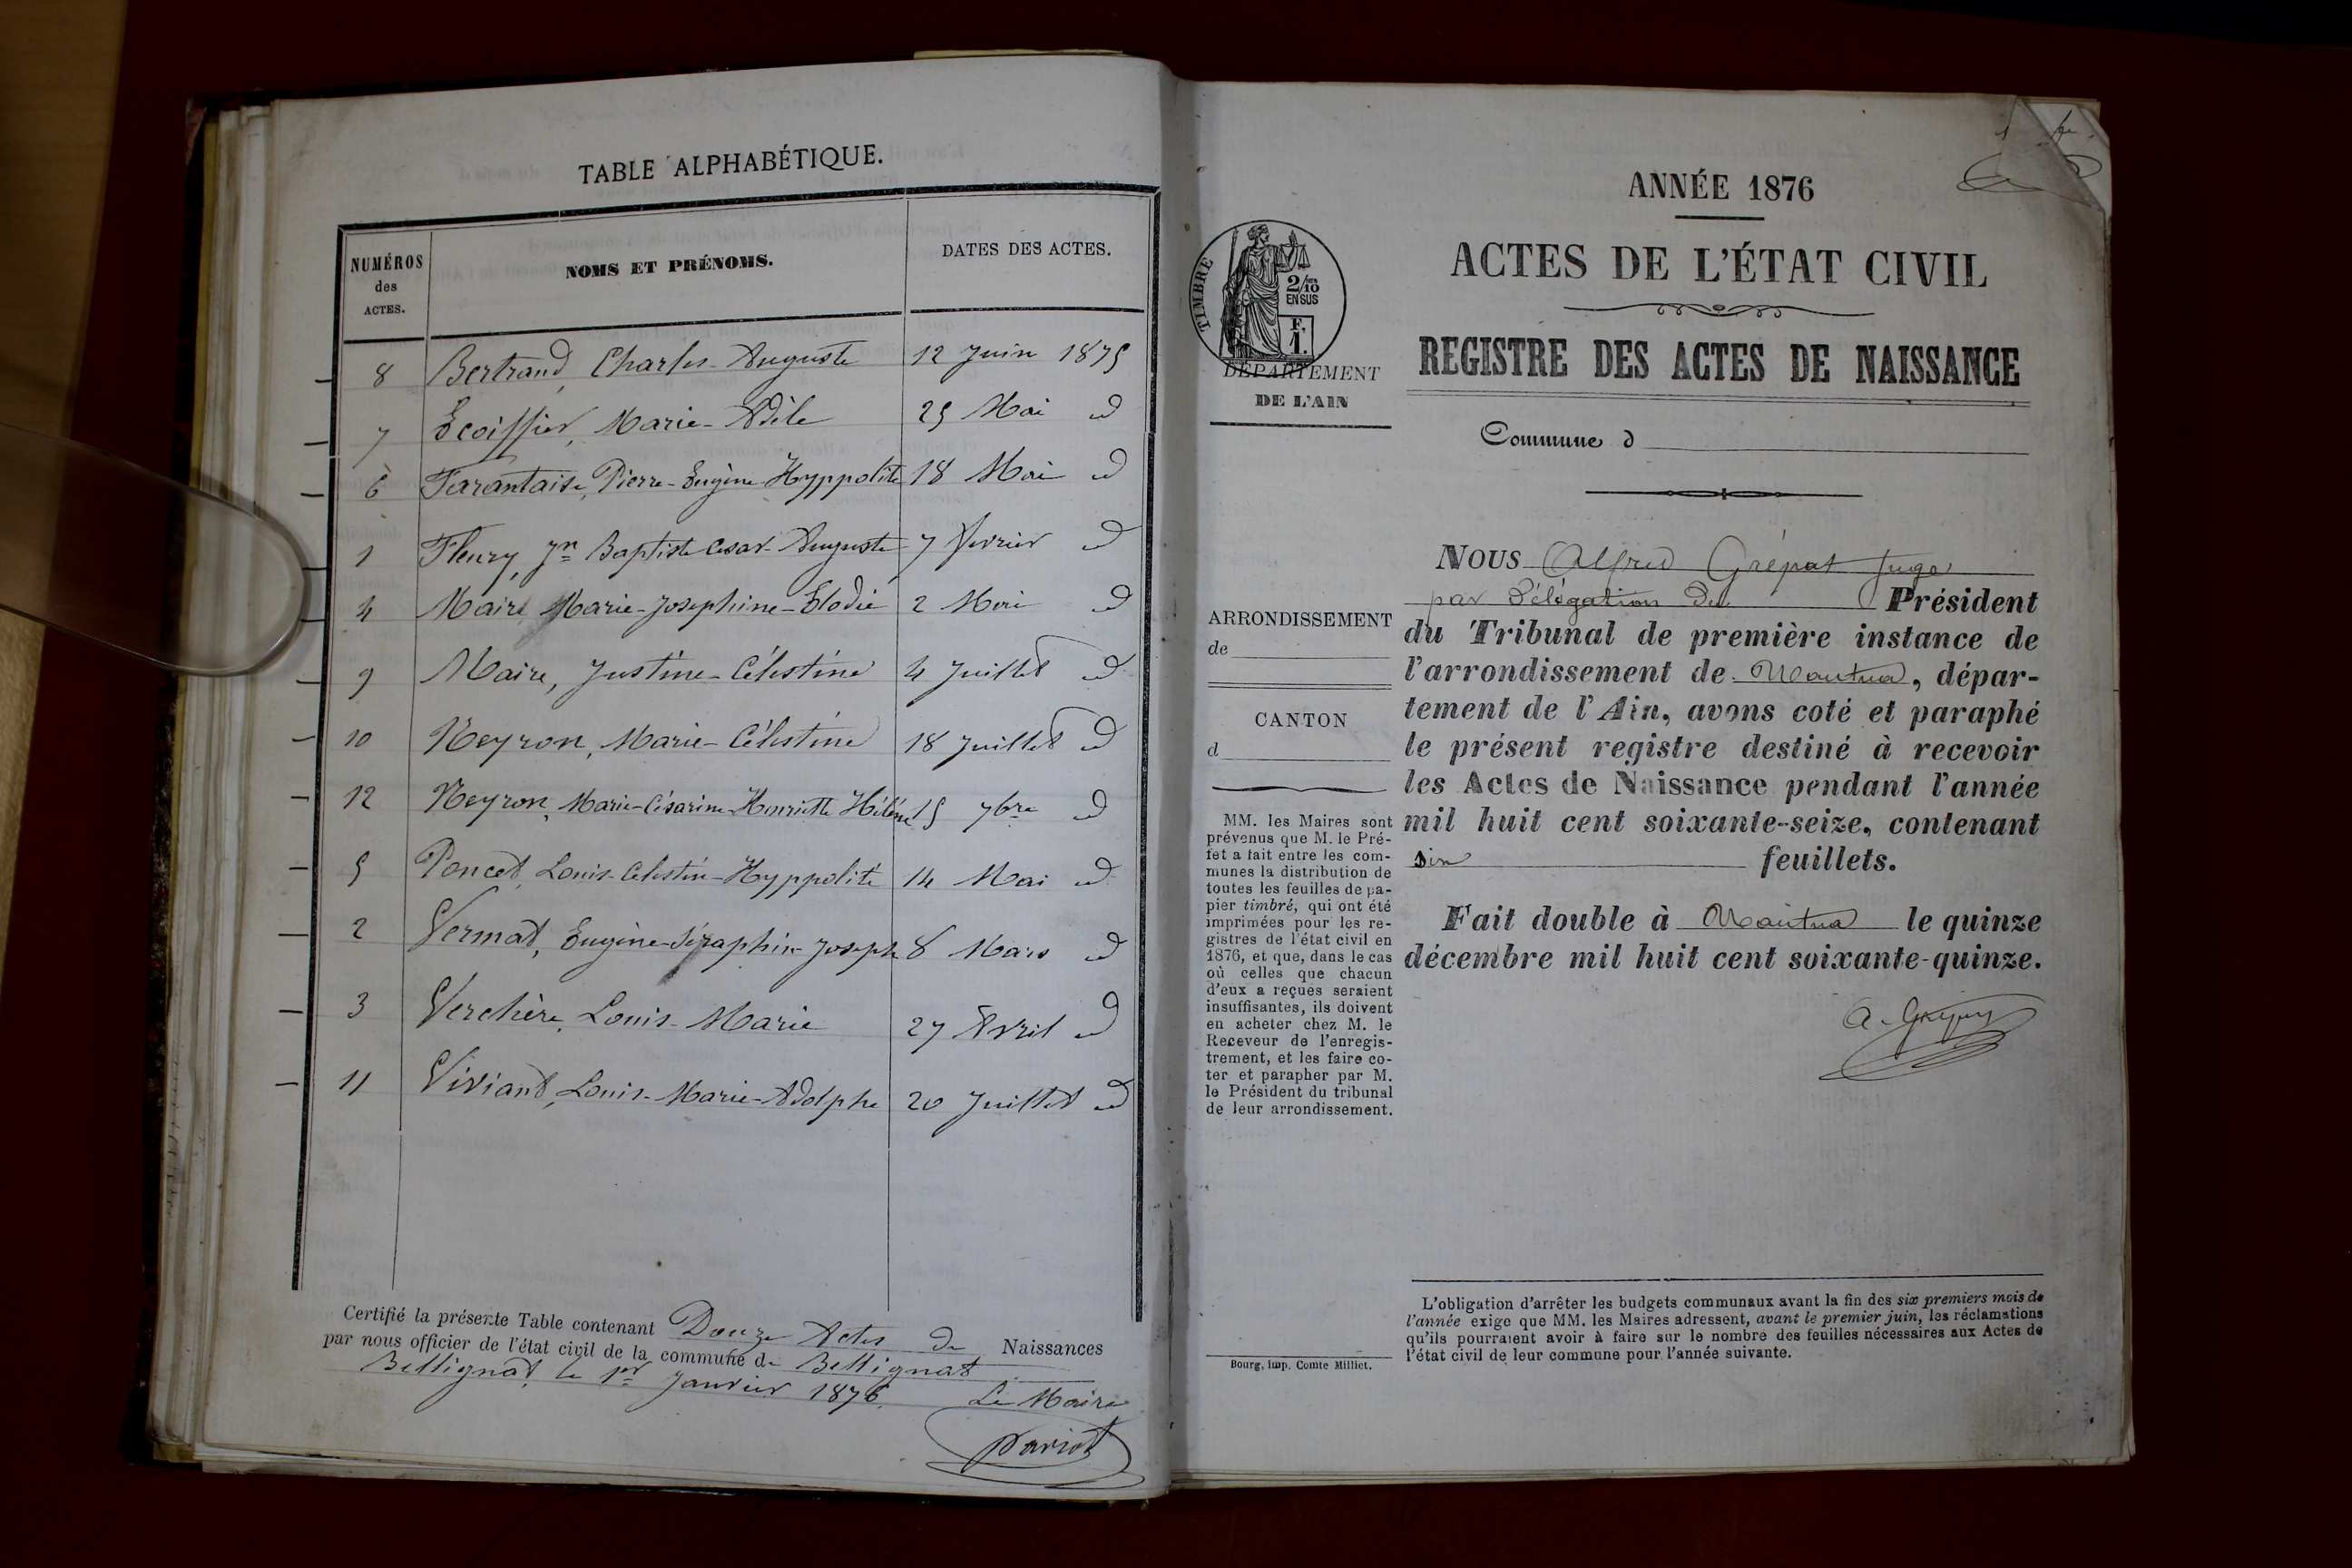 TABLE ALPHABÉTIQUE.
NUMÉROS des ACTES. NOMS ET PRÉNOMS. DATES DES ACTES.
8 Bertrand, Charles-Auguste 12 Juin 1875
7 Ecoiffier, Marie-Adèle 25 Mai d
6 Farantaise, Pierre-Eugène-Hyppolite 18 Mai d
1 Fleury, Jn Baptiste César-Auguste 7 février d
4 Maire Marie-Joséphine-Elodie 2 Mai d
9 Maire, Justine-Célestine 4 Juillet d
10 Neyron, Marie-Célestine 18 Juillet d
12 Neyron, Marie-Césarine-Henriette Hélène 15 7bre d
5 Poncet, Louis-Célestin-Hyppolite 14 Mai d
2 Vermat, Eugène-Séraphin-Joseph 8 Mars d
3 Verchère, Louis-Marie 27 Avril d
11 Viviant, Louis-Marie-Adolphe 20 Juillet d
Certifié la présente Table contenant Douze Actes de Naissances
par nous officier de l'état civil de la commune de Bellignat
Bellignat, le 1er Janvier 1876.
Le Maire
ANNÉE 1876
ACTES DE L'ÉTAT CIVIL
REGISTRE DES ACTES DE NAISSANCE
Commune d
TIMBRE
2/10
EN SUS
F.
1.
DÉPARTEMENT
DE L'AIN
ARRONDISSEMENT
de
CANTON
d
MM. les Maires sont
prévenus que M. le Pré-
fet a fait entre les com-
munes la distribution de
toutes les feuilles de pa-
pier timbré, qui ont été
imprimées pour les re-
gistres de l'état civil en
1876, et que, dans le cas
où celles que chacun
d'eux a reçues seraient
insuffisantes, ils doivent
en acheter chez M. le
Receveur de l'enregis-
trement, et les faire co-
ter et parapher par M.
le Président du tribunal
de leur arrondissement.
Bourg, imp. Comte Milliet.
NOUS Alfred Grépat Juge
par délégation du Président
du Tribunal de première instance de
l'arrondissement de Nantua, dépar-
tement de l'Ain, avons coté et paraphé
le présent registre destiné à recevoir
les Actes de Naissance pendant l'année
mil huit cent soixante-seize, contenant
six feuillets.
Fait double à Nantua le quinze
décembre mil huit cent soixante-quinze.
L'obligation d'arrêter les budgets communaux avant la fin des six premiers mois de
l'année exige que MM. les Maires adressent, avant le premier juin, les réclamations
qu'ils pourraient avoir à faire sur le nombre des feuilles nécessaires aux Actes de
l'état civil de leur commune pour l'année suivante.